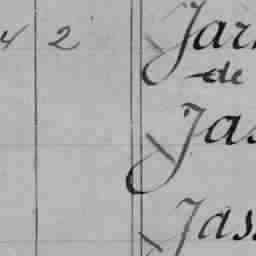 4 2 Jar
de
Jas
Jas